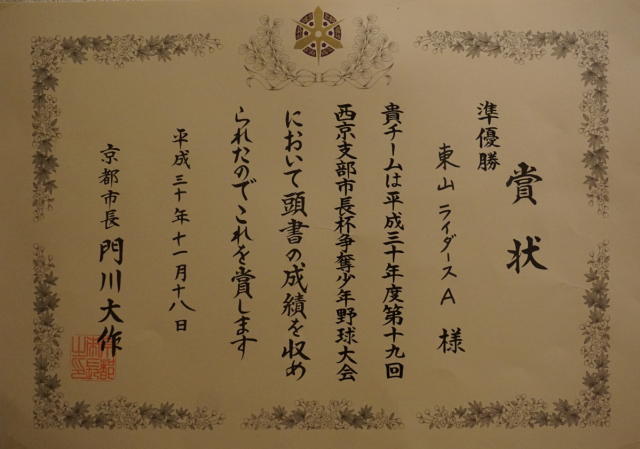 賞状
準優勝
東山ライダースA 様
貴チームは平成三十年度第十九回
西京支部市長杯争奪少年野球大会
において頭書の成績を収め
られたのでこれを賞します
平成三十年十一月十八日
京都市長 門川大作